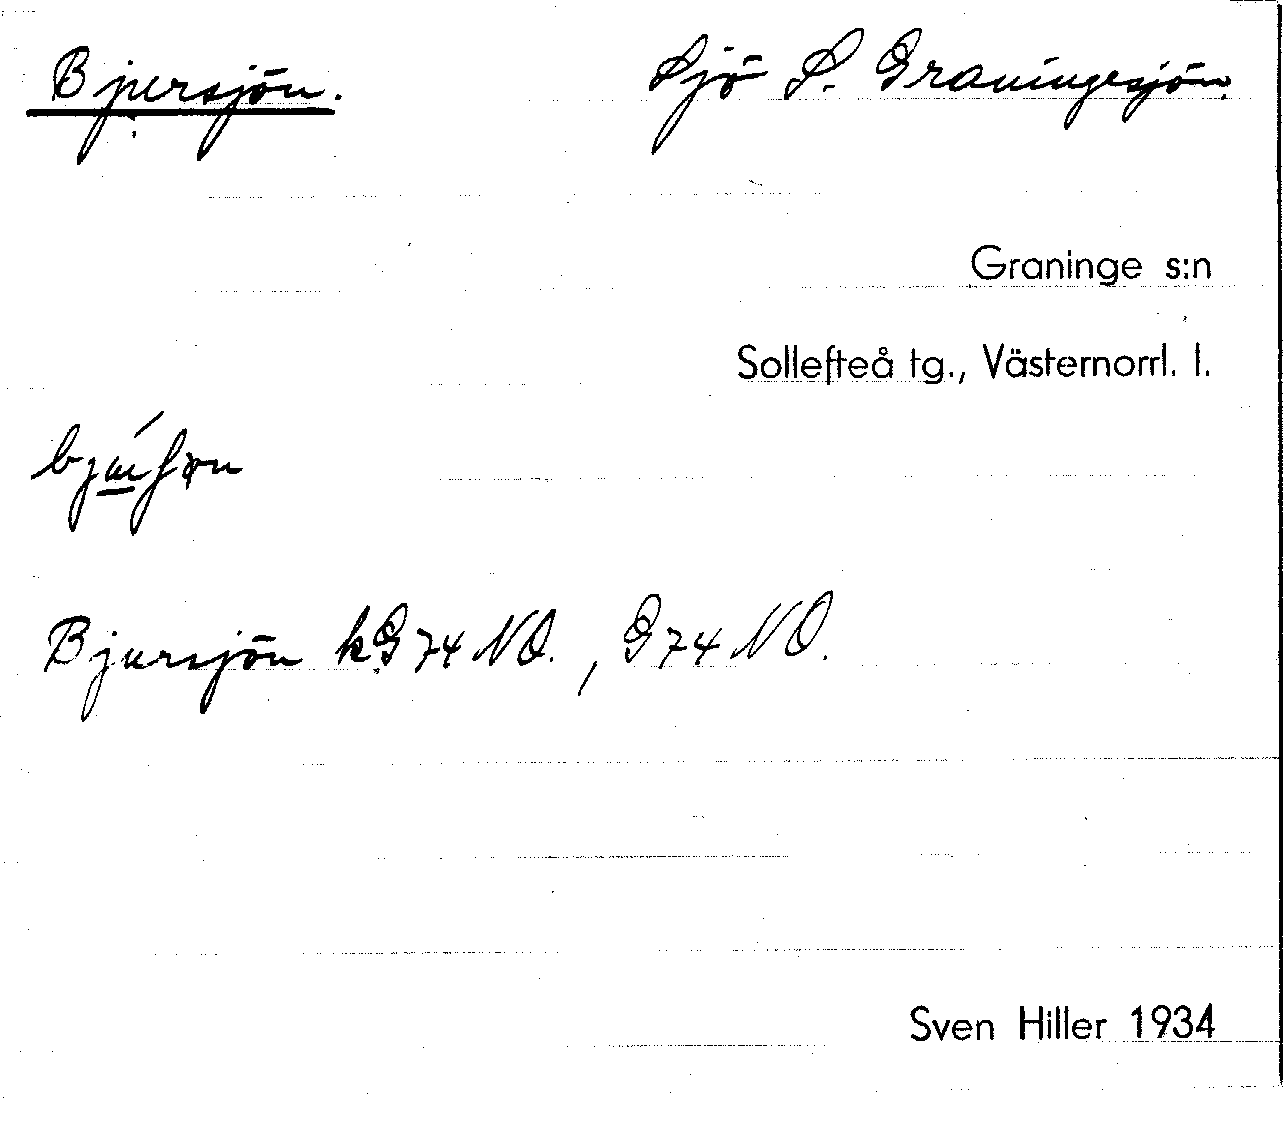 Bjursjön. Sjö S. Graningesjön.
Graninge s:n
Sollefteå tg., Västernorrl. l.
Bjursjön kG74NO., G74NO.
Sven Hiller 1934